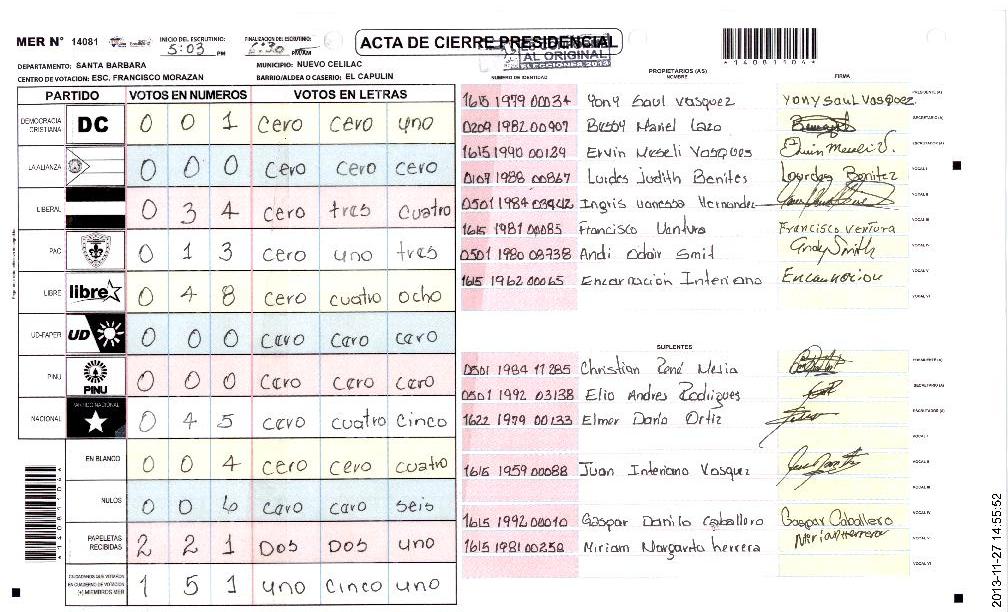 MER N° 14081
INICIO DEL ESCRUTINIO: 5:03 PM
FINALIZACION DEL ESCRUTINIO: PM/AM
ACTA DE CIERRE PRESIDENCIAL
AL ORIGINAL
ELECCIONES 2013
*14081104*
DEPARTAMENTO: SANTA BARBARA
MUNICIPIO: NUEVO CELILAC
CENTRO DE VOTACION: ESC. FRANCISCO MORAZAN
BARRIO/ALDEA O CASERIO: EL CAPULIN
PARTIDO VOTOS EN NUMEROS VOTOS EN LETRAS
DEMOCRACIA CRISTIANA DC 0 0 1 cero cero uno
LA ALIANZA 0 0 0 cero cero cero
LIBERAL 0 3 4 cero tres cuatro
PAC 0 1 3 cero uno tres
LIBRE libre 0 4 8 cero cuatro ocho
UD-FAPER UD 0 0 0 cero cero cero
PINU PINU 0 0 0 cero cero cero
NACIONAL PARTIDO NACIONAL 0 4 5 cero cuatro cinco
EN BLANCO 0 0 4 cero cero cuatro
NULOS 0 0 6 cero cero seis
PAPELETAS RECIBIDAS 2 2 1 Dos Dos uno
CIUDADANOS QUE VOTARON EN CUADERNO DE VOTACION (+) MIEMBROS MER 1 5 1 uno cinco uno
NUMERO DE IDENTIDAD PROPIETARIOS (AS) NOMBRE FIRMA
1615 1979 00034 Yony Saul Vasquez yony saul vasquez PRESIDENTE (A)
0209 1982 00907 Mariel Lazo SECRETARIO (A)
1615 1990 00129 Ervin Meseli Vasques ESCRUTADOR (A)
0107 1988 00867 Lurdes Judith Benites Lourdes Benitez VOCAL I
0501 1984 03442 Ingris Vanessa Hernandez VOCAL II
1615 1981 00085 Francisco Ventura Francisco Ventura VOCAL III
0501 1980 08738 Andi Odair Smit Andy Smith VOCAL IV
1615 1962 00065 Encarnacion Interiano Encarnacion VOCAL V
VOCAL VI
SUPLENTES
0501 1984 11285 Christian René Mejia PRESIDENTE (A)
0501 1992 03138 Elio Andres Rodrigues SECRETARIO (A)
1622 1979 00133 Elmer Dario Ortiz ESCRUTADOR (A)
VOCAL I
1615 1959 00088 Juan Interiano Vasquez VOCAL II
VOCAL III
1615 1992 00010 Gaspar Danilo Caballero Gaspar Caballero VOCAL IV
1615 1981 00258 Miriam Margarita herrera Miriam herrera VOCAL V
VOCAL VI
*14081104*
2013-11-27 14:55:52